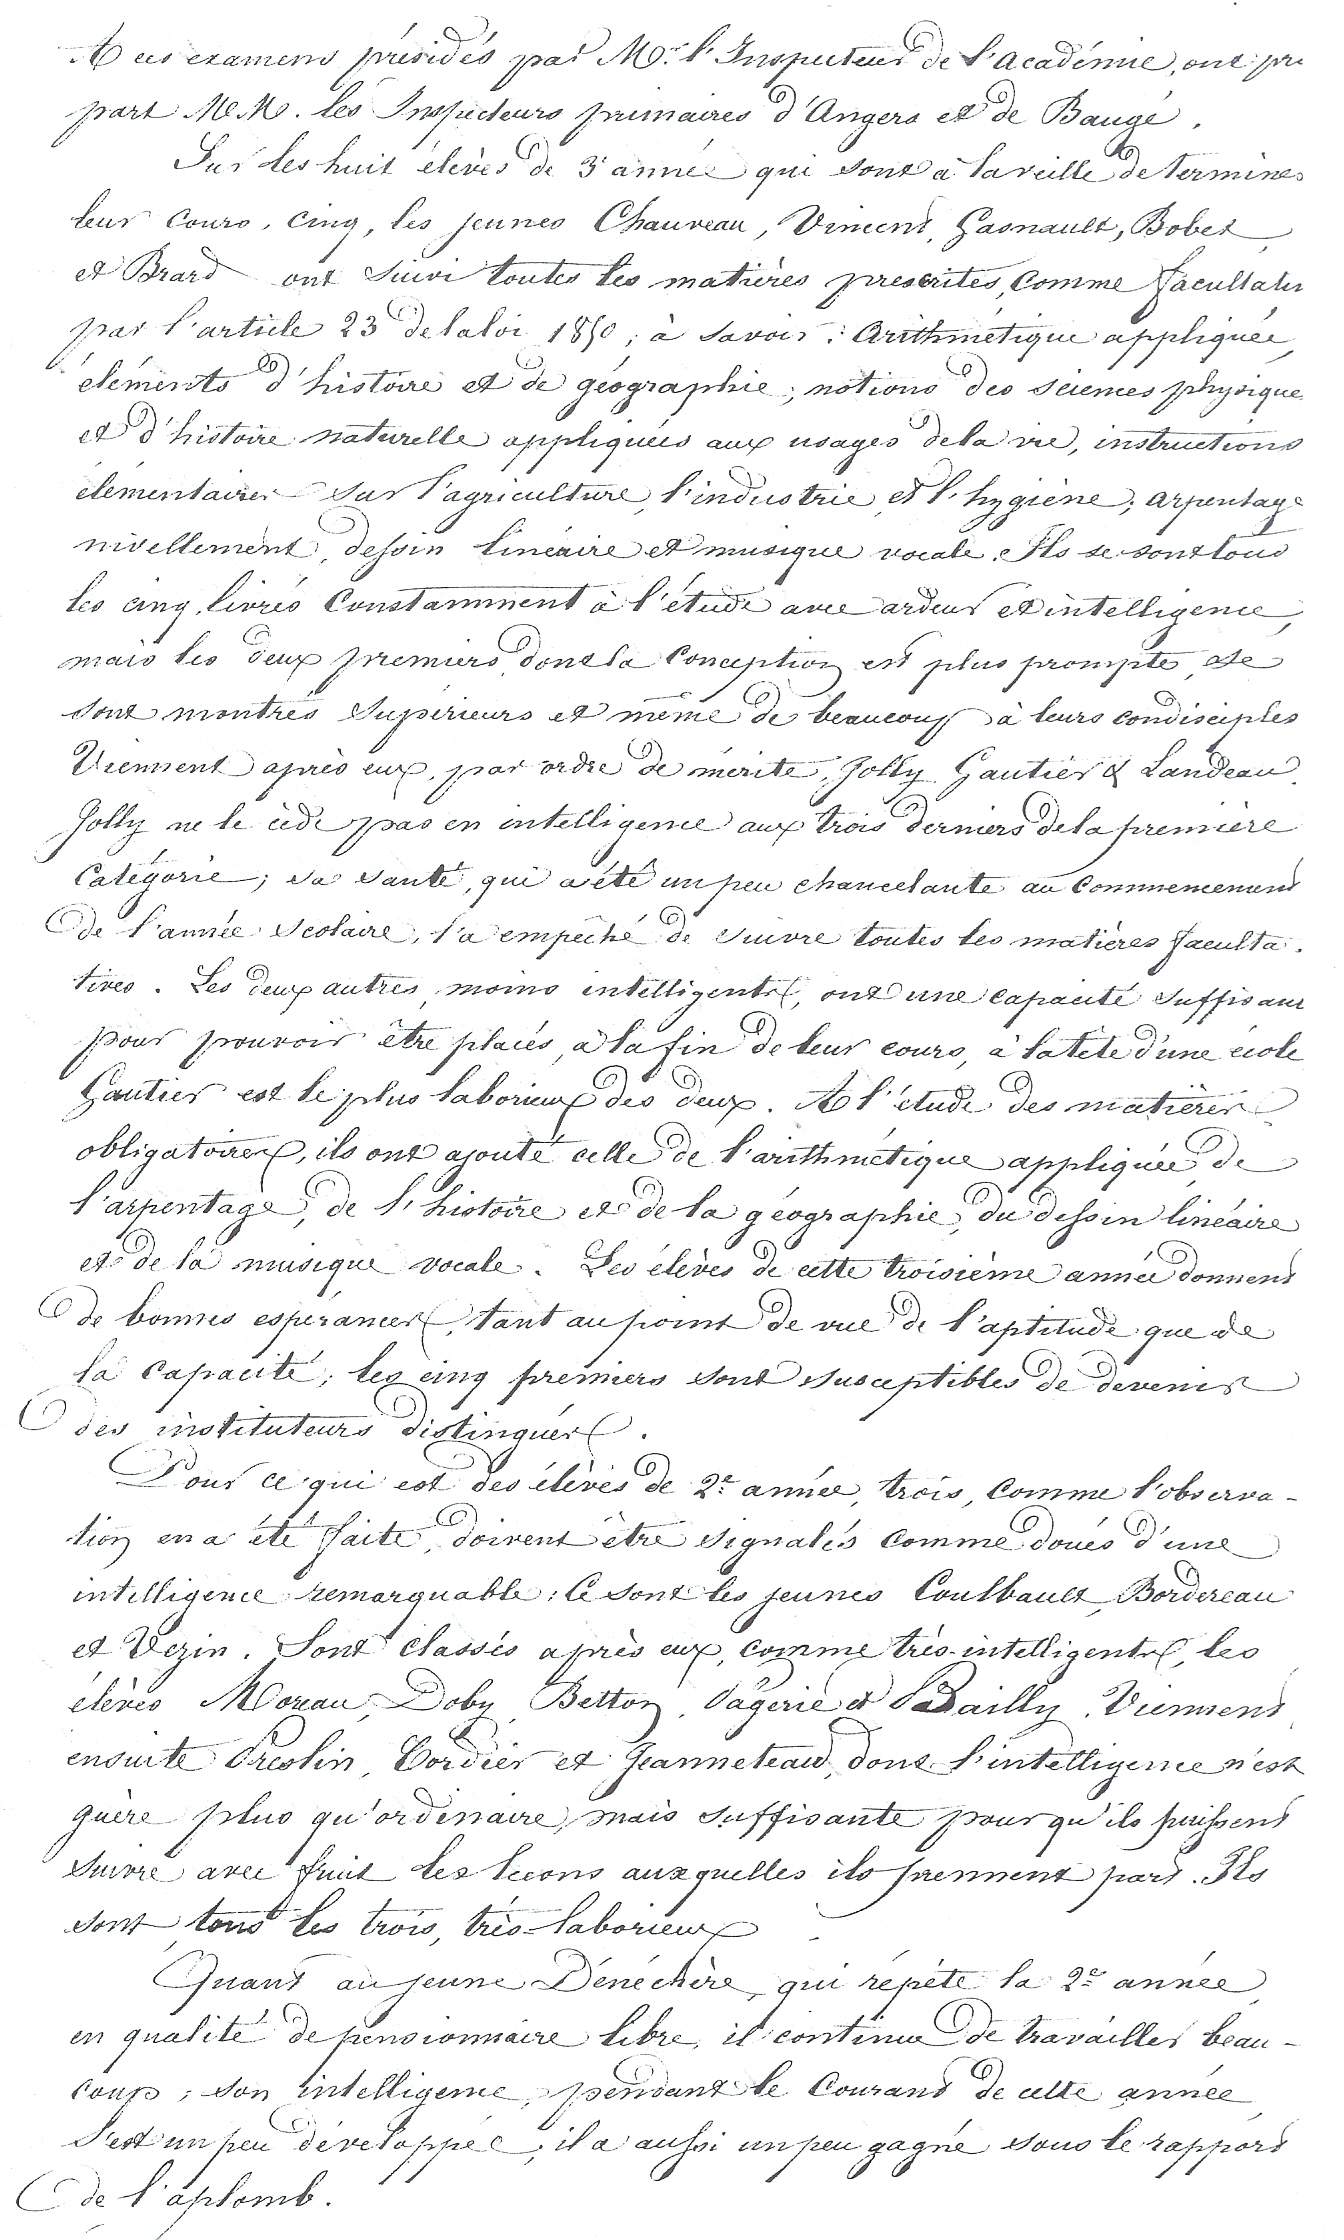 A ces examens présidés par Mr. l'Inspecteur de l'Académie, ont pri
part M.M. les Inspecteurs primaires d'Angers et de Baugé.
Sur les huit élèves de 3e année qui sont à la veille de terminer
leur cours, cinq, les jeunes Chauveau, Vincent, Gasnault, Bobet
et Brard ont suivi toutes les matières prescrites, comme facultativ
par l'article 23 de la loi 1850; à savoir: Arithmétique appliquée,
éléments d'histoire et de géographie; notions des sciences physique
et d'histoire naturelle appliquées aux usages de la vie, instructions
élémentaires sur l'agriculture, l'industrie et l'hygiène; arpentage
nivellement, dessin linéaire et musique vocale. Ils se sont tous
les cinq, livrés constamment à l'étude avec ardeur et intelligence,
mais les deux premiers dont la conception est plus prompte, se
sont montrés supérieurs et même de beaucoup à leurs condisciples
Viennent après eux, par ordre de mérite, Jolly Gautier & Landeau.
Jolly ne le cède pas en intelligence aux trois derniers de la première
catégorie; sa santé, qui a été un peu chancelante au commencement
de l'année scolaire, l'a empêché de suivre toutes les matières faculta-
tives. Les deux autres, moins intelligents, ont une capacité suffisant
pour pouvoir être placés, à la fin de leur cours, à la tête d'une école
Gautier est le plus laborieux des deux. A l'étude des matières
obligatoires, ils ont ajouté celle de l'arithmétique appliquée, de
l'arpentage, de l'histoire et de la géographie, du dessin linéaire
et de la musique vocale. Les élèves de cette troisième année donnent
de bonnes espérances, tant au point de vue de l'aptitude que de
la capacité; les cinq premiers sont susceptibles de devenir
des instituteurs distingués.
Pour ce qui est des élèves de 2e année, trois, comme l'observa-
tion en a été faite, doivent être signalés comme doués d'une
intelligence remarquable: Ce sont les jeunes Coulbault, Bordereau
et Vezin. Sont classés après eux, comme très-intelligents, les
élèves Moreau, Doby, Betton, Pagerie et Bailly. Viennent
ensuite Preslin, Cordier et Jeanneteau, dont l'intelligence n'est
guère plus qu'ordinaire, mais suffisante pour qu'ils puissent
suivre avec fruit les leçons auxquelles ils prennent part. Ils
sont tous les trois, très-laborieux
Quant au jeune Dénéchère, qui répète la 2e année,
en qualité de pensionnaire libre, il continue de travailler beau-
coup; son intelligence, pendant le courant de cette année,
s'est un peu développée; il a aussi un peu gagné sous le rapport
de l'aplomb.